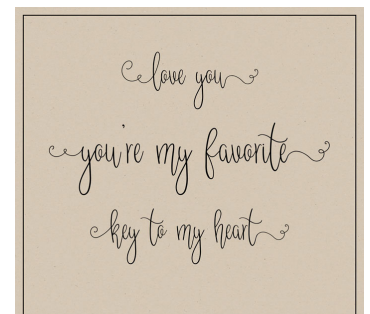 love you
you're my favorite
key to my heart